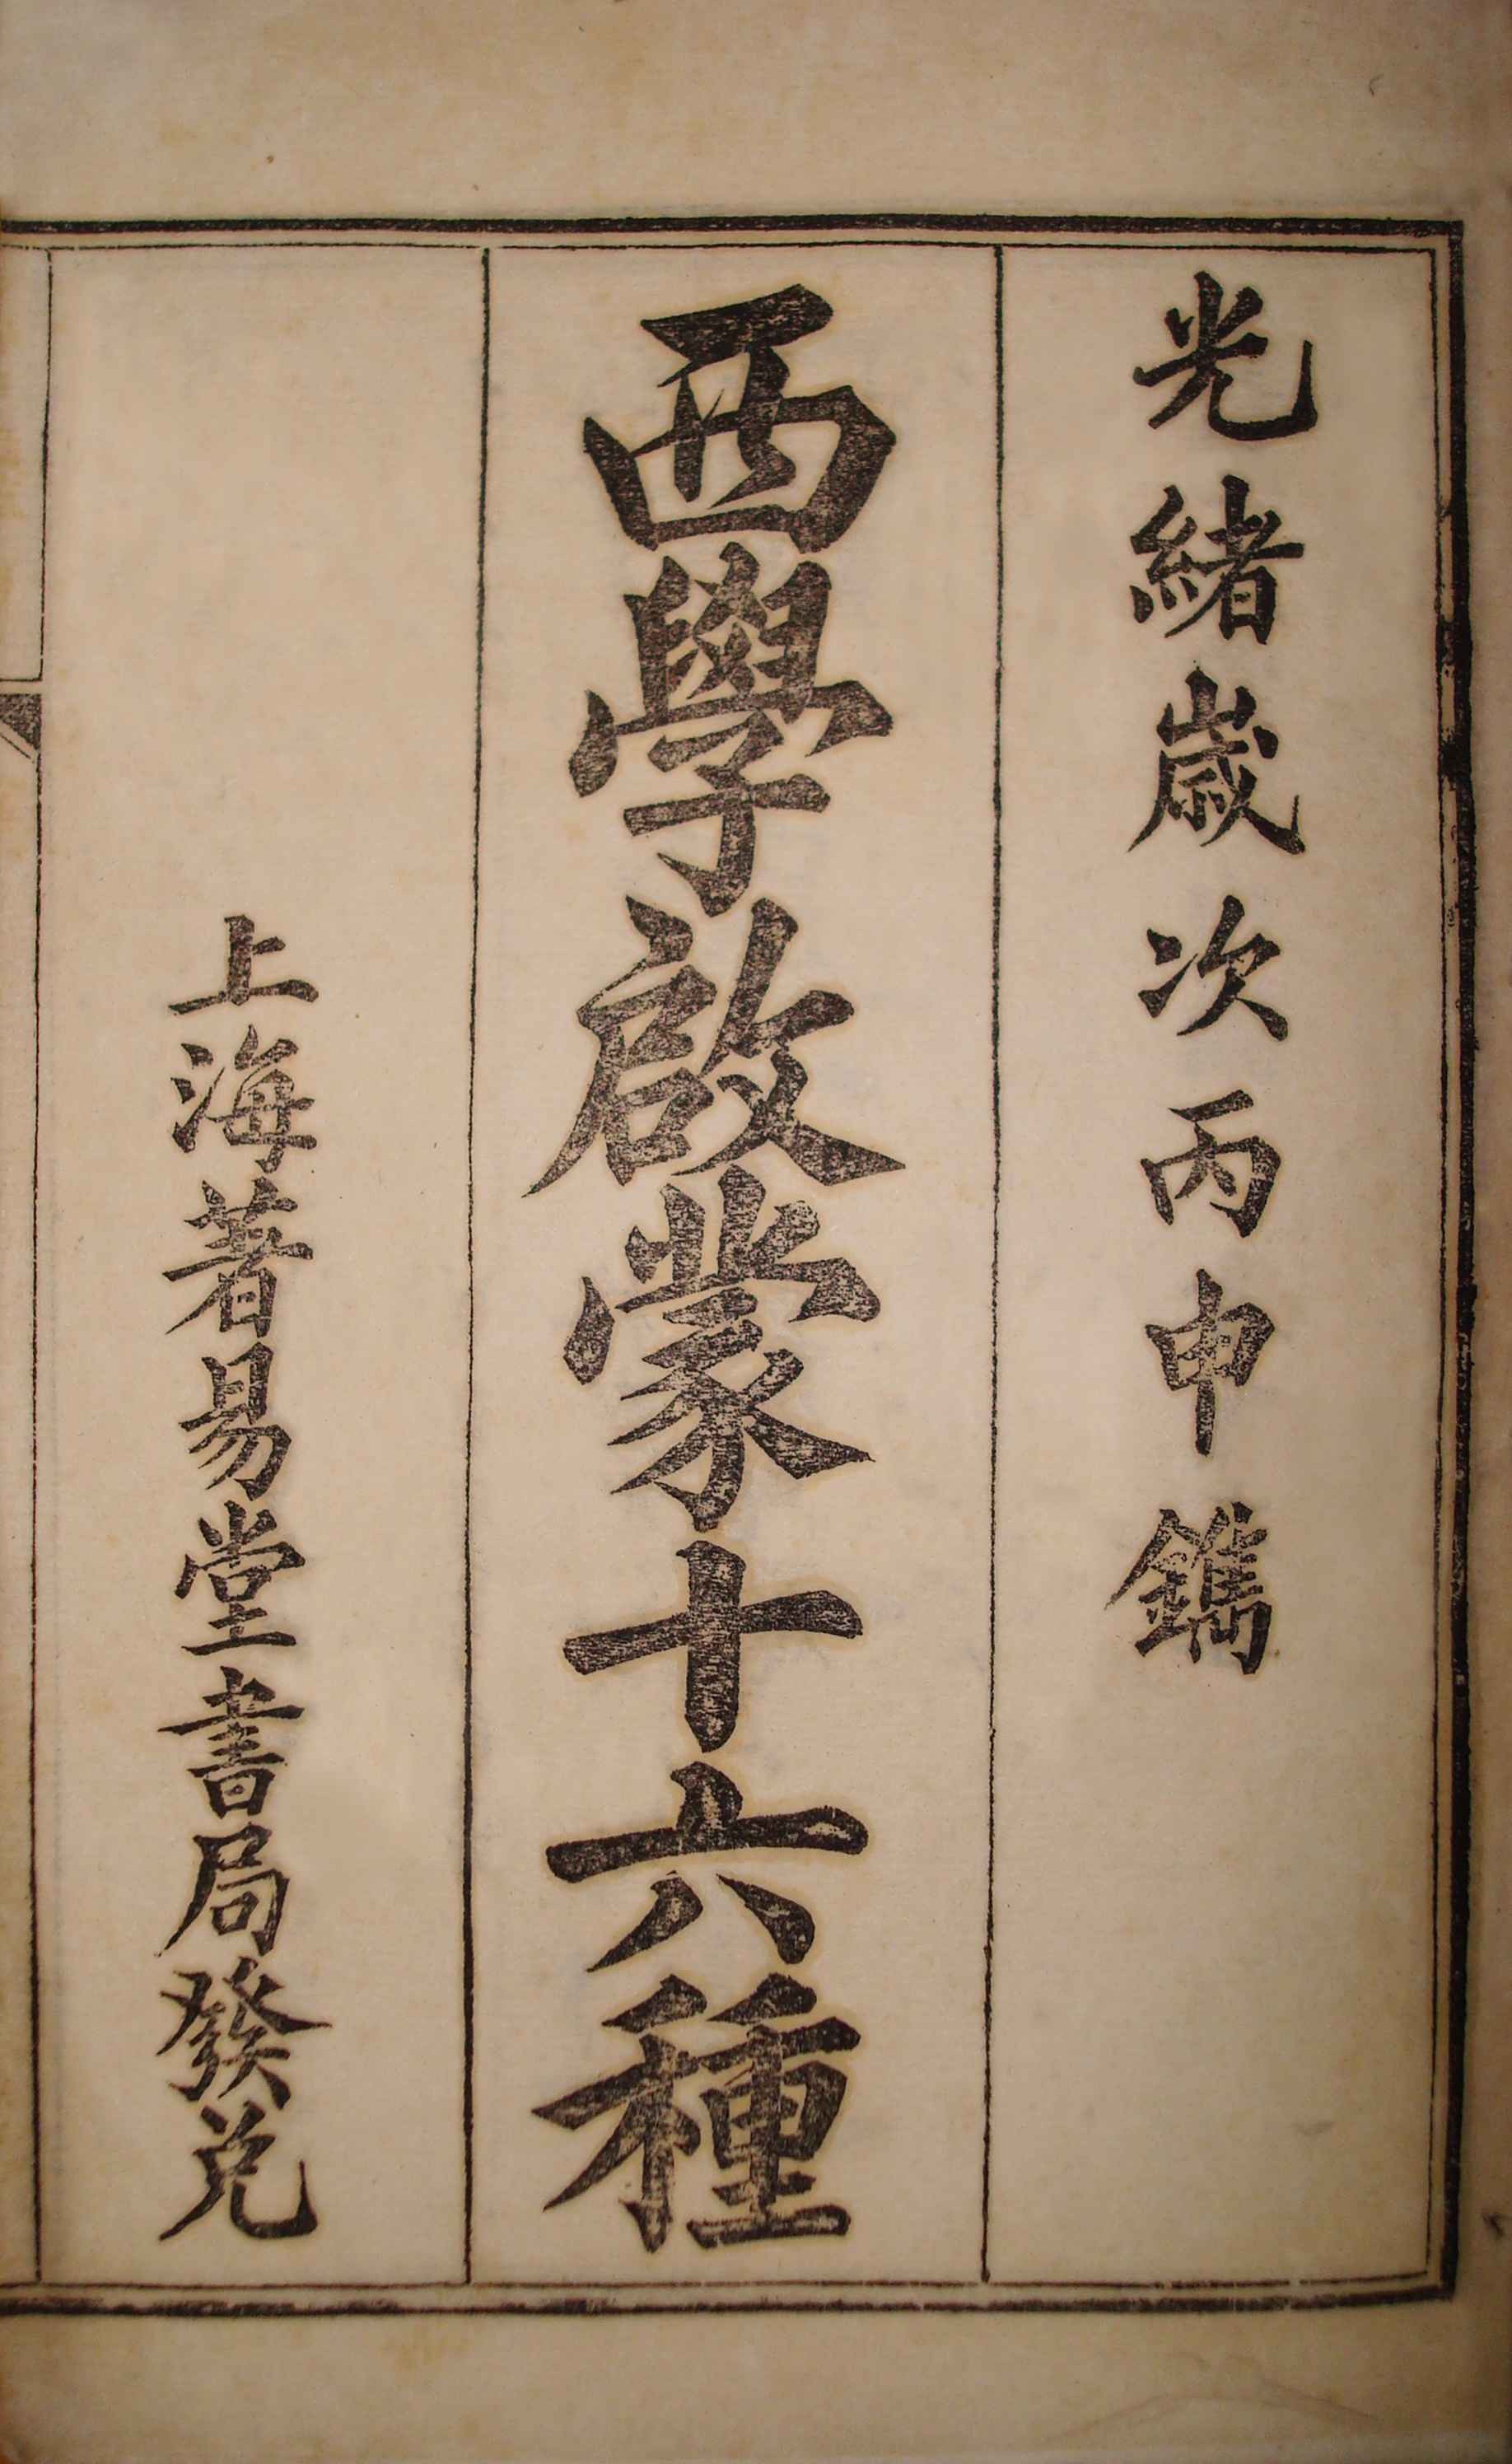 光緒歲次丙申鐫
西學啟蒙十六種
上海著易堂書局發兌